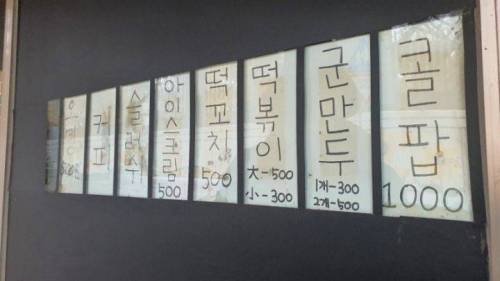 커피
슬러쉬
아이스크림
500
떡꼬치
500
떡볶이
大-500
小-300
군만두
1개-300
2개-500
콜팝
1000